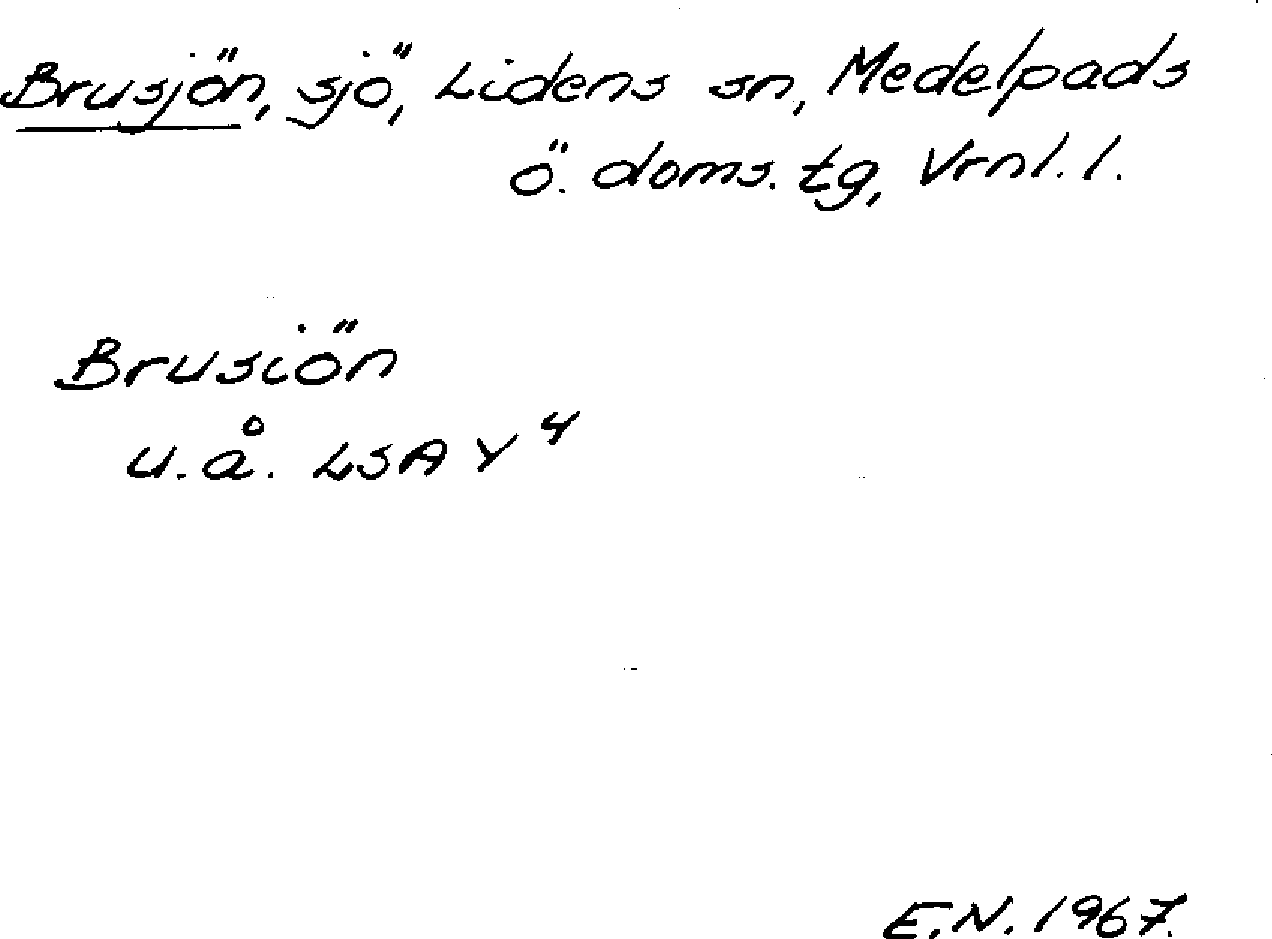 Brusjön, sjö, Lidens sn, Medelpads
ö. doms. tg, Vrnl. l.
Brusiön
u.å. LSA Y 4
E.N. 1967.